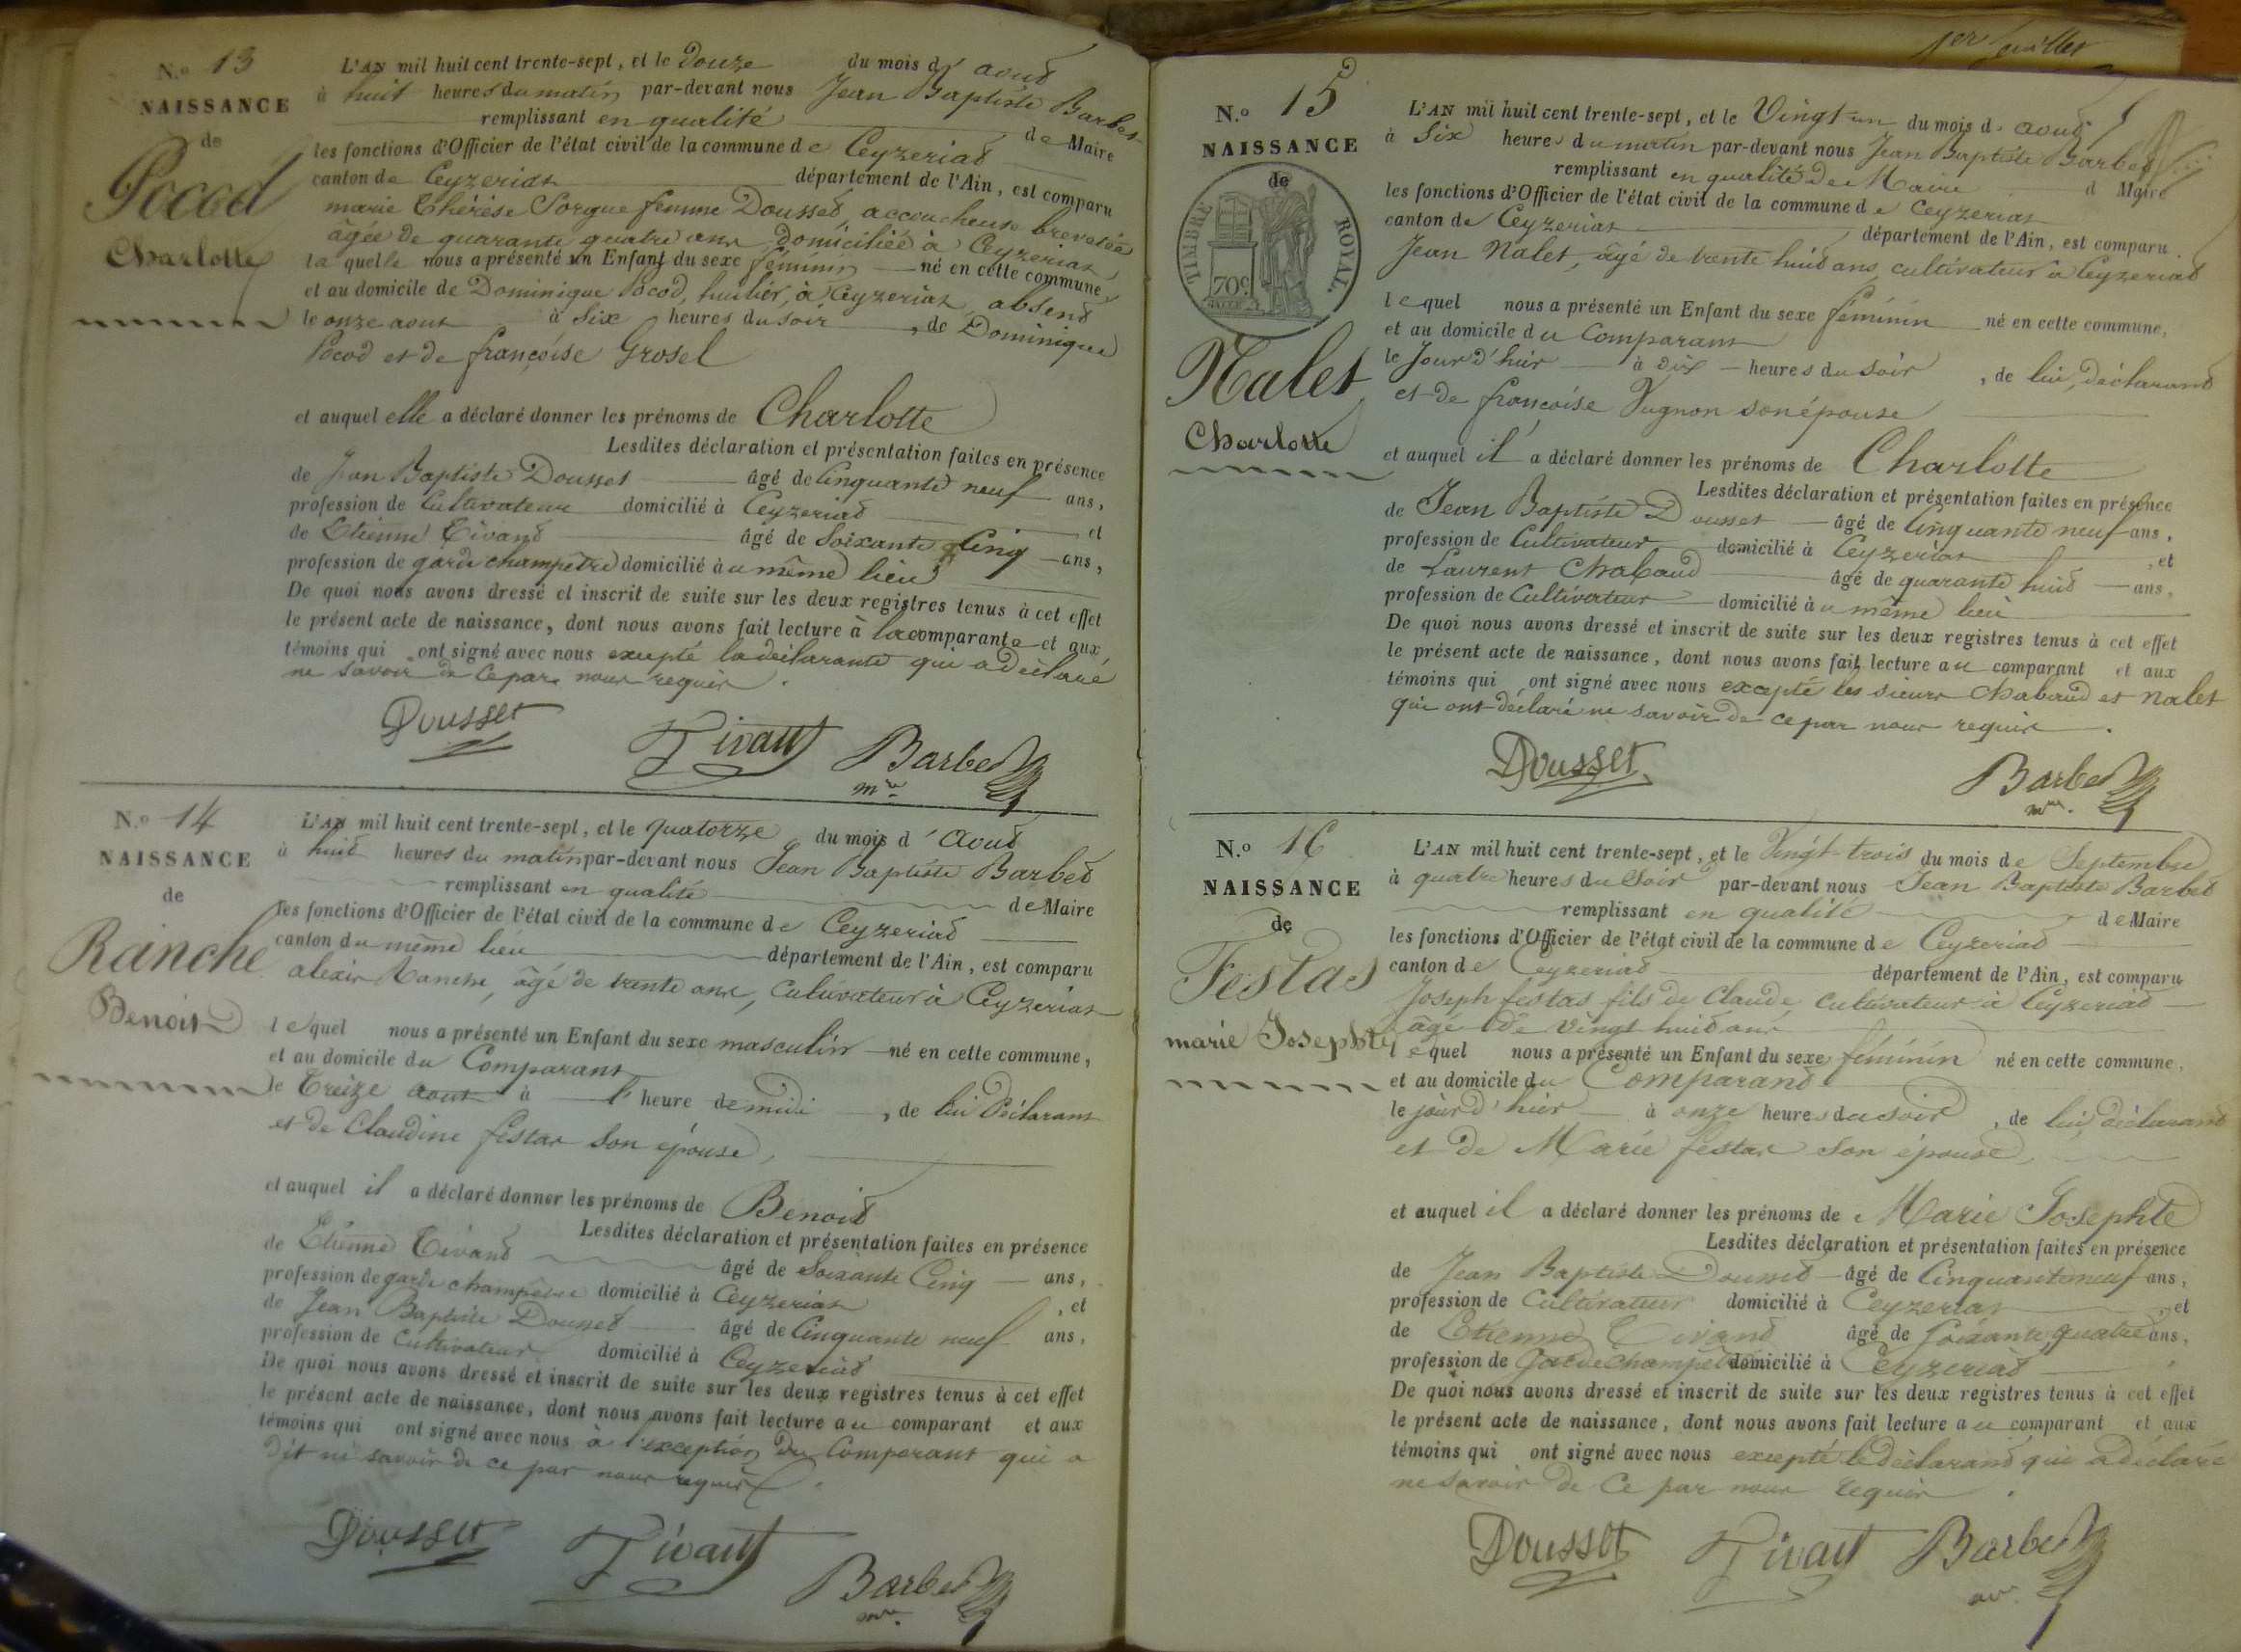 N.o 13
NAISSANCE
de
Pocod
Charlotte
L'AN mil huit cent trente-sept, et le Douze du mois d'aout
à huit heures du matin par-devant nous Jean Baptiste Barbet
remplissant en qualité de Maire
les fonctions d'Officier de l'état civil de la commune de Ceyzeriat
canton de Ceyzeriat département de l'Ain, est comparu
marie Thérèse Sorgue femme Dousset, accoucheuse brevetée
agée de quarante quatre ans domiciliée à Ceyzeriat
laquelle nous a présenté un Enfant du sexe féminin né en cette commune,
et au domicile de Dominique Pocod, huilier, à Ceyzeriat, absent
le onze aout à Six heures du soir, de Dominique
Pocod et de françoise Grosel
et auquel elle a déclaré donner les prénoms de Charlotte
Lesdites déclaration et présentation faites en présence
de Jean Baptiste Dousset âgé de Cinquante neuf ans,
profession de Cultivateur domicilié à Ceyzeriat et
de Etienne Tivant âgé de Soixante Cinq ans,
profession de garde champetre domicilié au même lieu
De quoi nous avons dressé et inscrit de suite sur les deux registres tenus à cet effet
le présent acte de naissance, dont nous avons fait lecture à la comparante et aux
témoins qui ont signé avec nous excepté la déclarante qui a déclaré
ne savoir de ce par nous requis.
Dousset Tivant Barbet
mre
N.o 14
NAISSANCE
de
Ranche
Benoit
L'AN mil huit cent trente-sept, et le quatorze du mois d'Aout
à huit heures du matin par-devant nous Jean Baptiste Barbet
remplissant en qualité de Maire
les fonctions d'Officier de l'état civil de la commune de Ceyzeriat
canton du même lieu département de l'Ain, est comparu
alexis Ranche, âgé de trente ans, Cultivateur à Ceyzeriat
lequel nous a présenté un Enfant du sexe masculin né en cette commune,
et au domicile du Comparant
le Treize aout à l'heure de midi, de lui Déclarant
et de Claudine festas son épouse,
et auquel il a déclaré donner les prénoms de Benoit
Lesdites déclaration et présentation faites en présence
de Etienne Tivant âgé de Soixante Cinq ans,
profession de garde champetre domicilié à Ceyzeriat, et
de Jean Baptiste Dousset âgé de Cinquante neuf ans,
profession de Cultivateur domicilié à Ceyzeriat
De quoi nous avons dressé et inscrit de suite sur les deux registres tenus à cet effet
le présent acte de naissance, dont nous avons fait lecture au comparant et aux
témoins qui ont signé avec nous à l'exception du Comparant qui a
dit ne savoir de ce par nous requis.
Dousset Tivant Barbet
mre
1er feuillet
N.o 15
NAISSANCE
de
TIMBRE ROYAL
70c
Nalet
Charlotte
L'AN mil huit cent trente-sept, et le Vingt un du mois d'aout
à Six heures du matin par-devant nous Jean Baptiste Barbet
remplissant en qualité de Maire d Maire
les fonctions d'Officier de l'état civil de la commune de Ceyzeriat
canton de Ceyzeriat département de l'Ain, est comparu
Jean Nalet, âgé de trente huit ans, cultivateur à Ceyzeriat
lequel nous a présenté un Enfant du sexe féminin né en cette commune,
et au domicile du Comparant
le Jour d'hier à dix heures du soir, de lui, déclarant
et de françoise Vugnon son épouse
et auquel il a déclaré donner les prénoms de Charlotte
Lesdites déclaration et présentation faites en présence
de Jean Baptiste Dousset âgé de Cinquante neuf ans,
profession de Cultivateur domicilié à Ceyzeriat, et
de Laurent Chabaud âgé de quarante huit ans,
profession de Cultivateur domicilié au même lieu
De quoi nous avons dressé et inscrit de suite sur les deux registres tenus à cet effet
le présent acte de naissance, dont nous avons fait lecture au comparant et aux
témoins qui ont signé avec nous excepté les sieurs Chabaud et Nalet
qui ont déclaré ne savoir de ce par nous requis.
Dousset Barbet
mre.
N.o 16
NAISSANCE
de
Festas
marie Josephte
L'AN mil huit cent trente-sept, et le Vingt trois du mois de Septembre
à quatre heures du Soir par-devant nous Jean Baptiste Barbet
remplissant en qualité de Maire
les fonctions d'Officier de l'état civil de la commune de Ceyzeriat
canton de Ceyzeriat département de l'Ain, est comparu
Joseph festas fils de Claude, Cultivateur à Ceyzeriat
âgé de vingt huit ans
lequel nous a présenté un Enfant du sexe féminin né en cette commune,
et au domicile du Comparant
le jour d'hier à onze heures du soir, de lui, déclarant
et de Marie festas son épouse,
et auquel il a déclaré donner les prénoms de Marie Josephte
Lesdites déclaration et présentation faites en présence
de Jean Baptiste Dousset âgé de Cinquante neuf ans,
profession de Cultivateur domicilié à Ceyzeriat, et
de Etienne Tivant âgé de soixante quatre ans,
profession de Garde Champetre domicilié à Ceyzeriat
De quoi nous avons dressé et inscrit de suite sur les deux registres tenus à cet effet
le présent acte de naissance, dont nous avons fait lecture au comparant et aux
témoins qui ont signé avec nous excepté le déclarant qui a déclaré
ne savoir de ce par nous requis.
Dousset Tivant Barbet